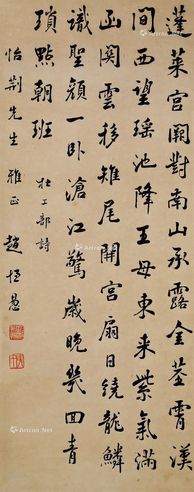 蓬萊宮闕對南山承露金莖霄漢
間西望瑶池降王母東来紫氣滿
函関雲移雉尾開宮扇日繞龍鱗
識聖顏一卧滄江驚歲晚幾回青
瑣點朝班 杜工部詩
怡荆先生 雅正 趙恒惖